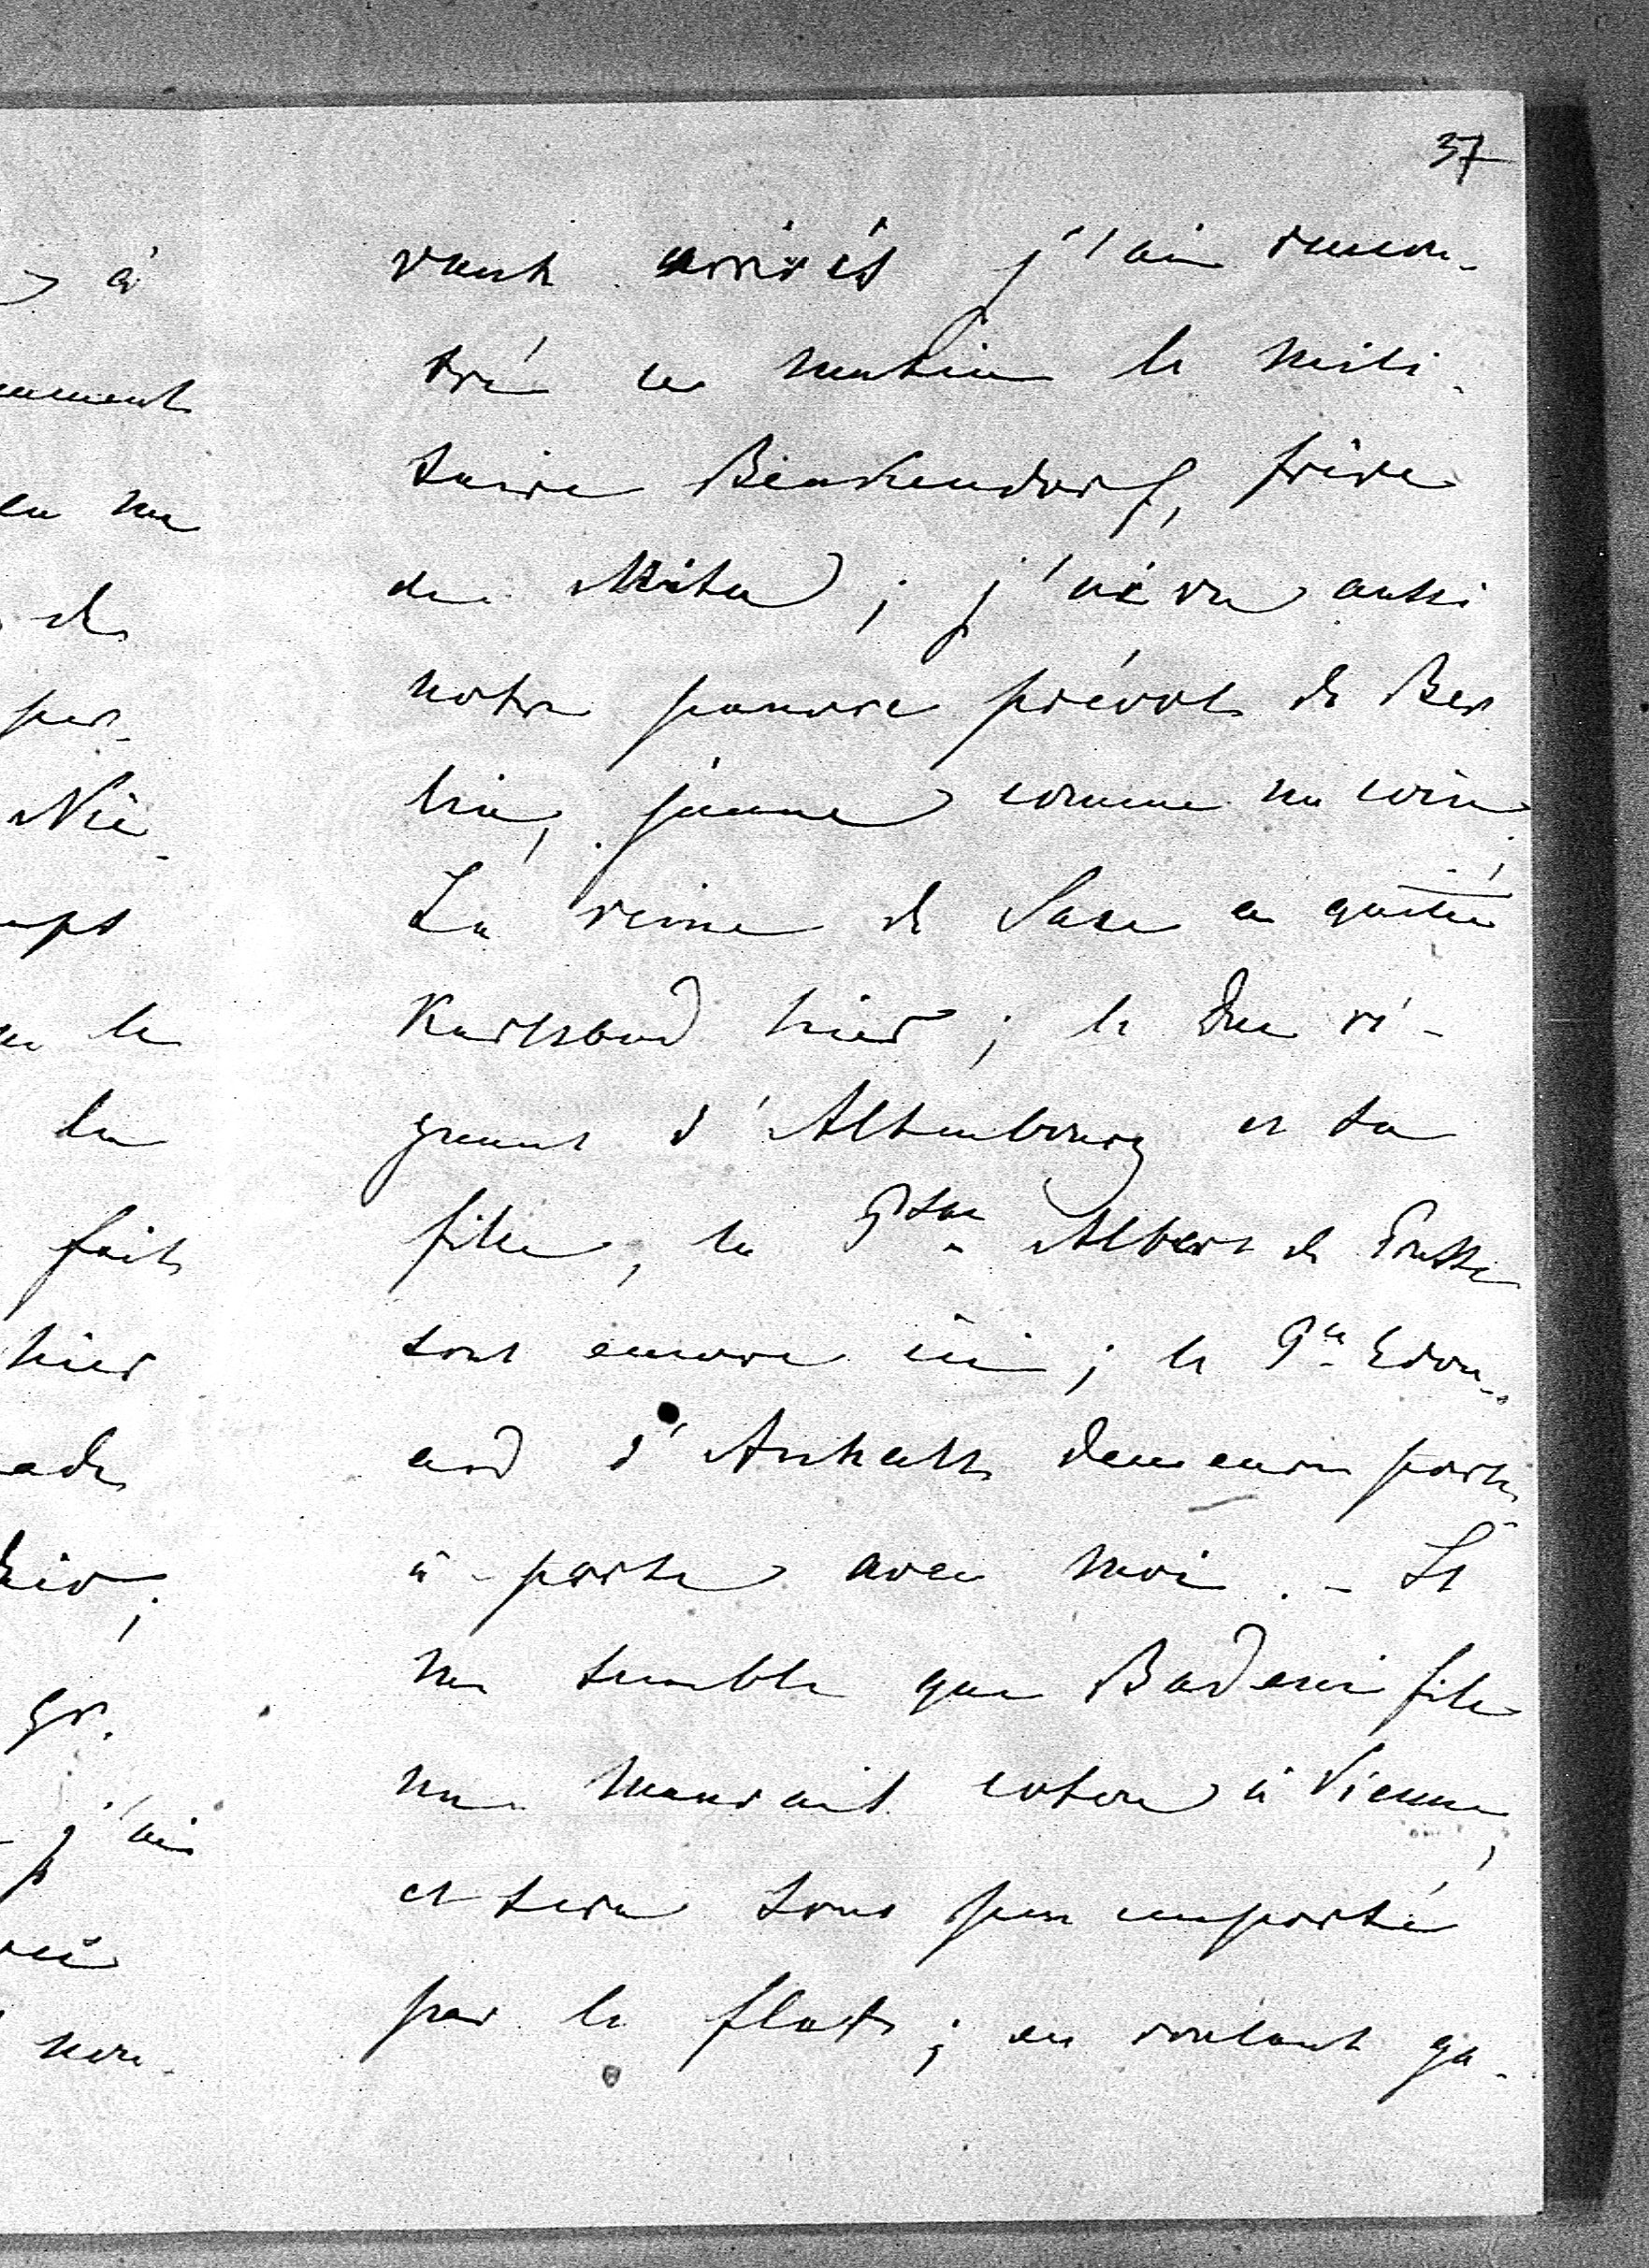 37
vants arrivés j'ai rencon-
tré ce matin le mili-
taire Benkendorf, frère
de Mita ; j'ai vu aussi
notre pauvre prévôt de Ber
lin, jaune comme un coin ;
La reine de Saxe a quitté
Karlsbad hier ; le Duc ré-
gnant d'Altenbourg et sa
fille, la Psse Albert de Prusse
sont encore ici ; le Pce Edou-
ard d'Anhalt demeure porte
à porte avec moi . - Il
me semble que Badeni file
un mauvais coton à Vienne,
et sera sous peu emporté
par le flot ; en voulant ga-
à
mment
en me
de
per-
Niè-
mps
le
la
fait
hier
ade
gr.
j'ai
non-